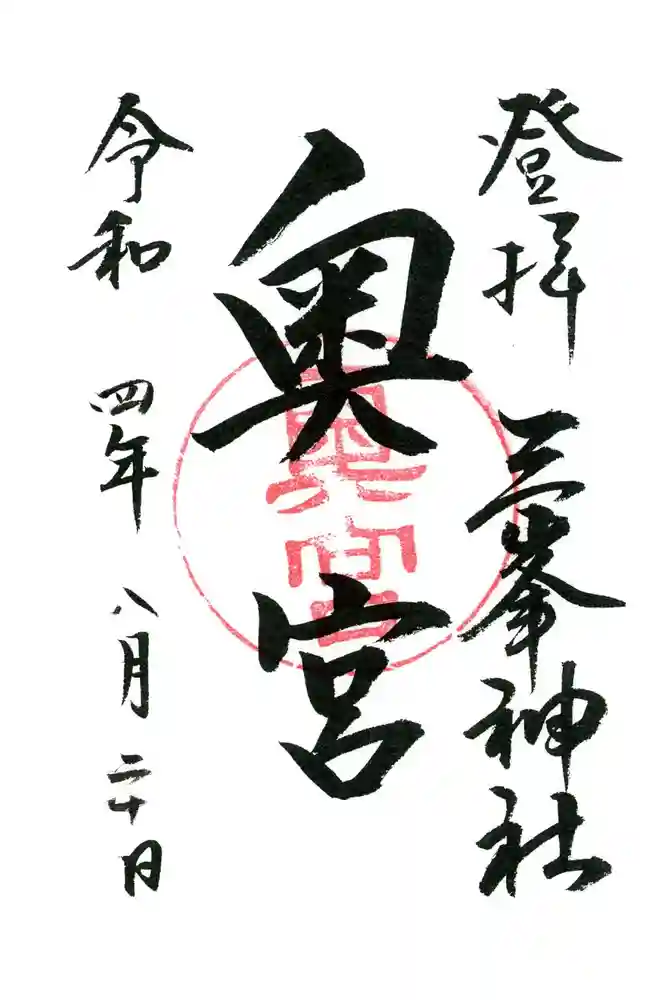 登拝 三峯神社
奥宮
奥宮
令和 四年 八月 二十日